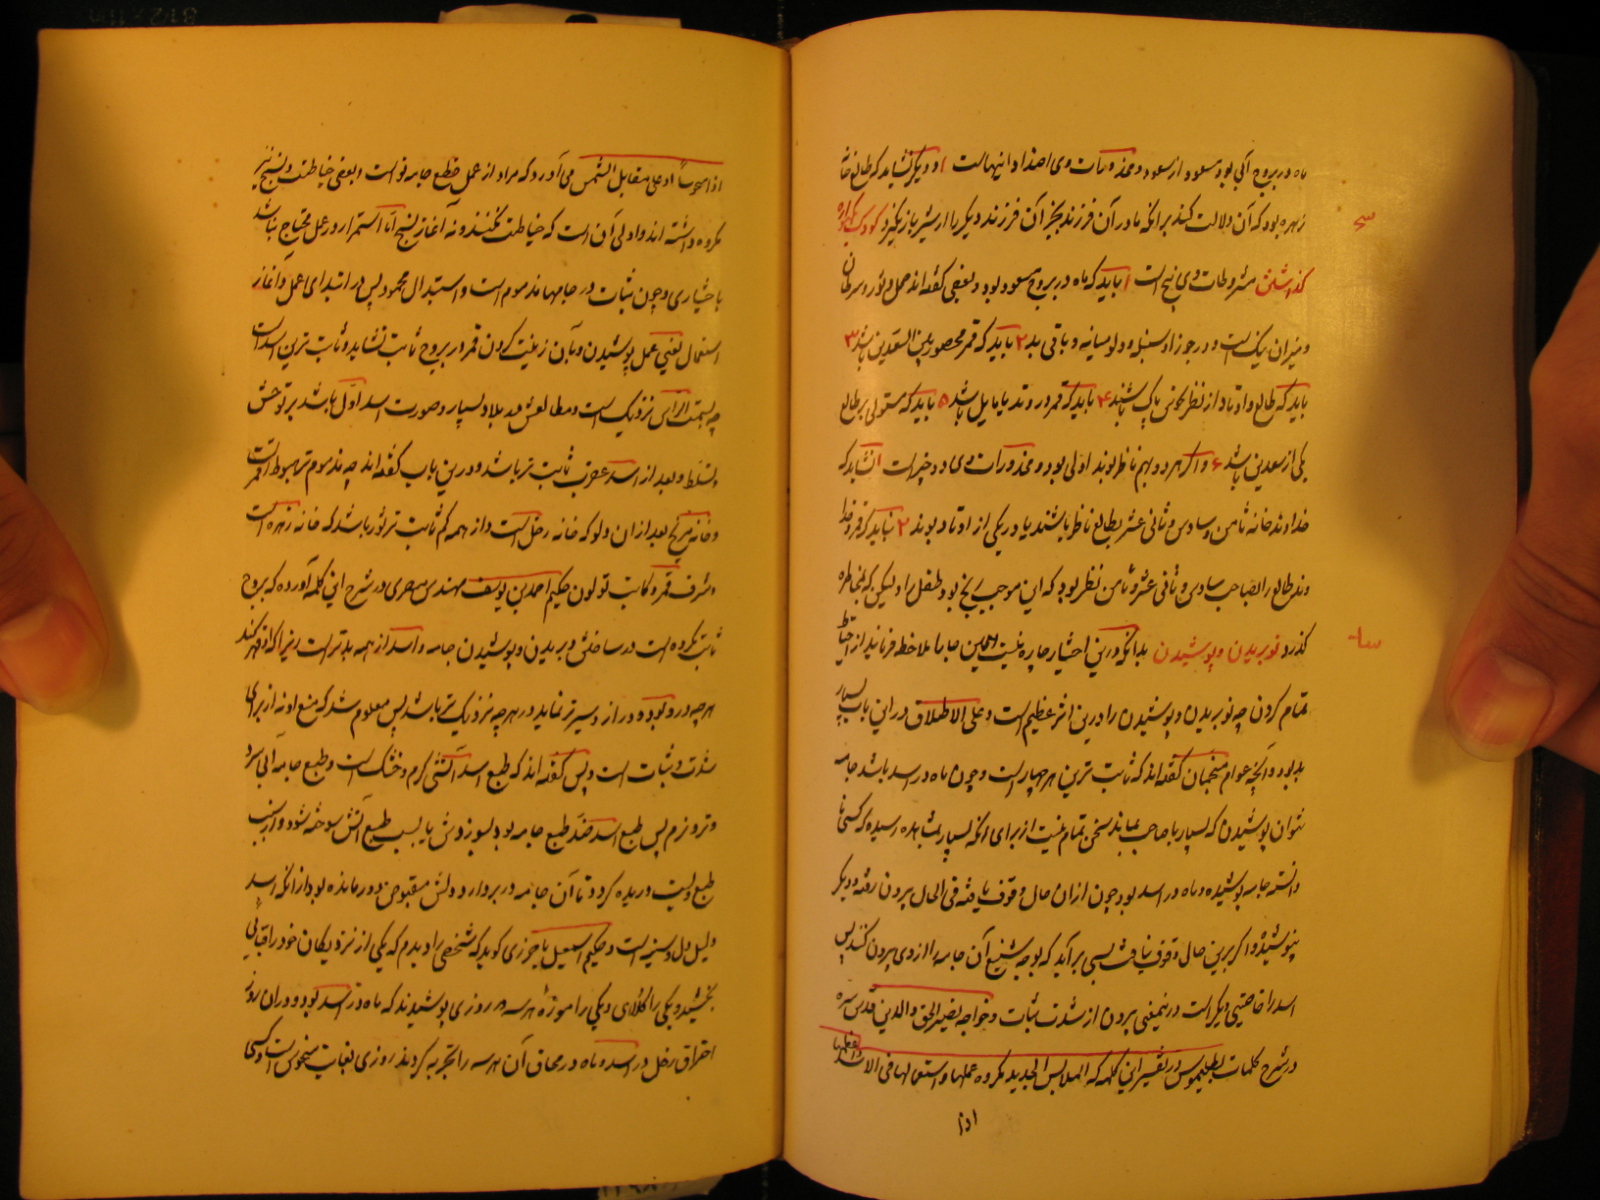 ماه در بروج آبی بود مسعود از سعود و محذورات وی اضداد اینهاست ۱ و دیگر نشاید که طالع خانه
زهره بود که آن دلالت کند بر آنکه مادر آن فرزند بجز آن فرزند دیگر را از شیر باز نگیرد کودک بگهواره
گذاشتن مشروطات وی پنج است ۱ باید که ماه در بروج مسعود بود و بعضی گفته‌اند حمل و ثور و سرطان
و میزان نیک است و در جوزا و سنبله و دلو میانه و باقی بد ۲ باید که قمر محصور بین السعدین باشد ۳
باید که طالع و اوتاد از نظر نحوس پاک باشند ۴ باید که قمر در وتد یا مایل باشد ۵ باید که مستولی بر طالع
یکی از سعدین باشد ۶ و اگر هر دو بهم ناظر بوند اولی بود و محذورات وی دو چیز است ۱ نشاید که
خداوند خانه ثامن و سادس و ثانی عشر بطالع ناظر باشند یا در یکی از اوتاد بوند ۲ نباید که قمر و خدا
وند طالع را بصاحب سادس و ثانی عشر و ثامن نظر بود که این موجب رنج بود طفل را و لیکن که بمخاطره
گذرد نو بریدن و پوشیدن بدانکه درین اختیار چاره نیست همین جا ملاحظه فرمایند از احتیاط
تمام کردن چه نو بریدن و پوشیدن را درین اثر عظیم است و علی الاطلاق در این باب بسیار
بد بود و آنچه عوام منجمان گفته‌اند که ثابت ترین هر چهار است و چون ماه در اسد باشد جامه
نتوان پوشیدن که بسیار با صاحب بماند سخن تمام نیست از برای آنکه بسیار بمشاهده رسیده که کسی نا
دانسته جامه پوشیده و ماه در اسد بود چون از آن حال وقوف یافته فی الحال بیرون رفته و دیگر
نپوشیده و اگر برین حال وقوف نیافت بسی برآید که بوجه شنیع آن جامه را از وی بیرون کنند پس
اسد را خاصیتی دیگر است درینمعنی بیرون از شدت ثبات و خواجه نصیر الحق والدین قدس سره
در شرح کلمات بطلمیوس در تفسیر این کلمه که الملابس الجدیده مکروه عملها و استعمالها فی الاسد و اعظمها
اذا
اذا منحوسا او علی مقابل الشمس می‌آورد که مراد از عمل قطع جامه نو است و بعضی خیاطت و نسج نیز
مکروه داشته‌اند و اولی آن است که خیاطت نکنند و نه آغاز نسج اما استمرار در عمل محتاج نباشد
باختیاری و چون ثبات در جامها مذموم است و استبدال محمود پس در ابتدای عمل و آغاز
استعمال یعنی عمل پوشیدن و بآن زینت کردن قمر در بروج ثابت نشاید و ثابت ترین اسد است
چه بسمت الرأس نزدیک است و مطالعش مدید بلاد بسیار و صورت اسد اول باشد بر توحش
و تسلط و بعد از اسد عقرب ثابت تر باشد و درین باب گفته‌اند چه مذموم تر هبوط قمر است
و خانه مریخ بعد از آن دلو که خانه زحل است و از همه کم ثابت تر ثور باشد که خانه زهره است
و شرف قمر و کاتب تولون حکیم احمد بن یوسف مهندس مصری در شرح این کلمه آورده که بروج
ثابت مکروه است در ساختن و بریدن و پوشیدن جامه و اسد از همه بدتر است زیرا که از قهر کند
هر چه در و بود و دراز و سیر تر نماید در هر چه نزدیک تر باشد پس معلوم شد که منع او نه از برای
شدت و ثبات است و پس گفته‌اند که طبع اسد آتشی گرم و خشک است و طبع جامه آبی سرد
و تر و نرم پس طبع اسد ضد طبع جامه بود بسوزدش یا بسبب طبع آتش سوخته شود و از سبب
طبع و لیت دریده گردد تا آن جامه در بر وارد و دلش مقبوض و درمانده بود از آنکه اسد
دلیل دل و سینه است و حکیم اسمعیل باخرزی گوید که شخصی را دیدم که یکی از نزدیکان خود را قبایی
بخشید و یکی را کلاهی و یکی را موزه هر سه در روزی پوشیدند که ماه در اسد بود و در آن روز
احتراق زحل در اسد و ماه در محاق آن هر سه را تجربه کردند روزی بغایت منحوس است و کسی